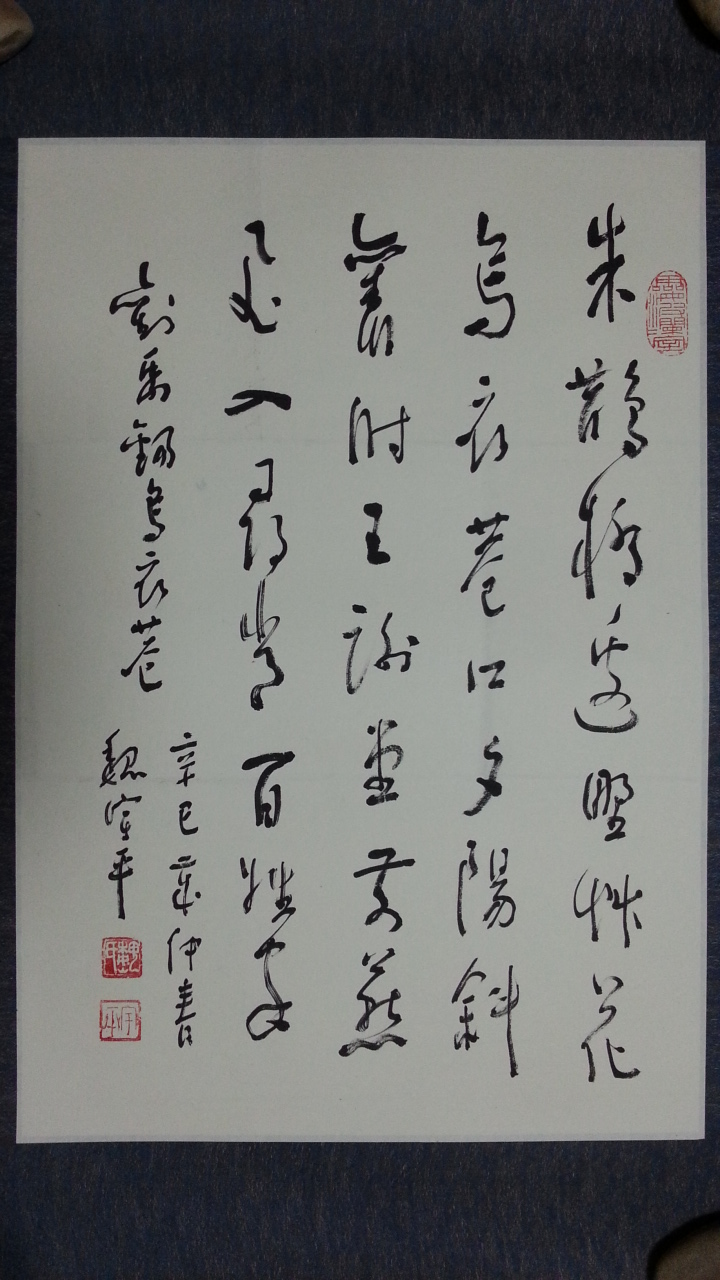 朱鵲橋邊野艸花
烏衣巷口夕陽斜
舊時王謝堂前燕
飛入尋常百姓家
劉禹錫烏衣巷
辛巳年仲春
魏宇平
魏氏
宇平